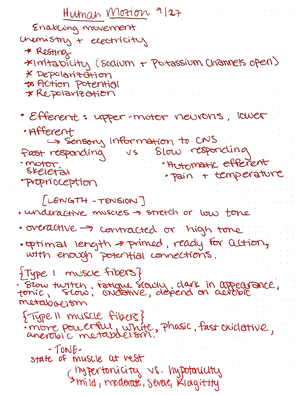 Human Motion 9/27
Enabling movement
chemistry + electricity
* Resting
* Irritability (Sodium + Potassium Channels open)
* Depolarization
* Action Potential
* Repolarization
• Efferent: upper-motor neurons, lower
• Afferent
↳ Sensory Information to CNS
Fast responding vs Slow responding
• motor, skeletal • Automatic efferent
• Proprioception • pain + temperature
[LENGTH - TENSION]
• underactive muscles → stretch or low tone
• overactive → contracted or high tone
• optimal length → primed, ready for action,
with enough potential connections.
{Type I muscle fibers}
• Slow twitch, fatigue slowly, dark in appearance,
tonic, slow, oxidative, depend on aerobic
metabolism
{Type II muscle fibers}
• more powerful, white, phasic, fast oxidative,
anerobic metabolism.
- TONE -
state of muscle at rest
hypertonicity vs. hypotonicity
↳ mild, moderate, severe, Ridgitity